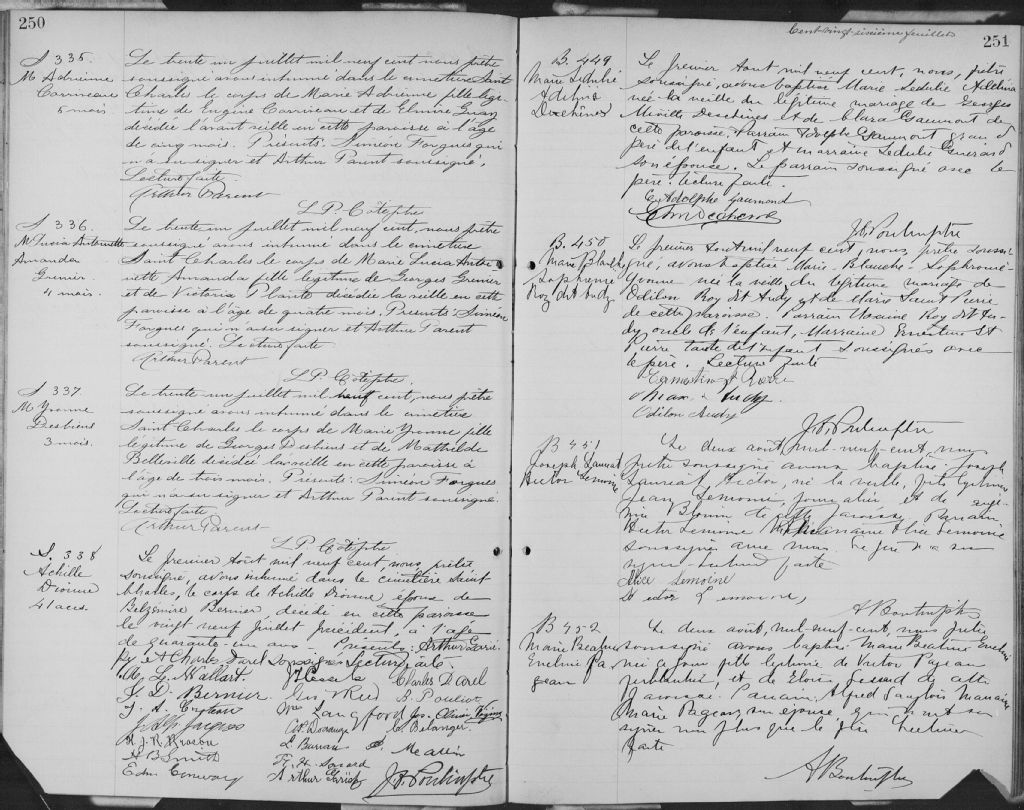 250
S 335.
M Adrienne
Corriveau
5 mois.
Le trente un juillet mil neuf cent nous prêtre
soussigné avons inhumé dans le cimetière Saint
Charles le corps de Marie Adrienne fille légi-
time de Eugène Corriveau et de Elmire Guay
décédée l'avant veille en cette paroisse à l'âge
de cinq mois. Présents: Simeon Forgues qui
n'a su signer et Arthur Parent soussigné.
Lecture faite.
Arthur Parent
L.P. Côté ptre
S 336.
M Lucia Antoinette
Amanda
Grenier
4 mois.
Le trente un juillet mil neuf cent, nous prêtre
soussigné avons inhumé dans le cimetière
Saint Charles le corps de Marie Lucia Antoi-
nette Amanda fille légitime de Georges Grenier
et de Victoria Plante décédée la veille en cette
paroisse à l'âge de quatre mois. Présents: Simeon
Forgues qui n'a su signer et Arthur Parent
soussigné. Lecture faite
Arthur Parent
L.P. Côté ptre.
S 337.
M Yvonne
Desbiens
3 mois.
Le trente un juillet mil neuf cent, nous prêtre
soussigné avons inhumé dans le cimetière
Saint Charles le corps de Marie Yvonne fille
légitime de Georges Desbiens et de Mathilde
Belleville décédée la veille en cette paroisse à
l'âge de trois mois. Présents: Simeon Forgues
qui n'a su signer et Arthur Parent soussigné.
Lecture faite
Arthur Parent
L.P. Côté ptre
S. 338
Achille
Dionne
41 ans.
Le premier août mil neuf cent, nous, prêtre
soussigné, avons inhumé dans le cimetière Saint
Charles, le corps de Achille Dionne, époux de
Belzémire Bernier, décédé en cette paroisse
le vingt neuf juillet précédent, à l'âge
de quarante-un ans. Présents: Arthur
et Charles Darel soussignés. Lecture faite.
Charles Darel
J. D. Bernier
Wm Reed B. Pouliot
Langford Jos.
J. A.
Jacques A. Belanger
H. J. R.
H B Smith
Edm Conway Arthur
251
Cent vingt sixième feuillet
B. 449
Marie Sédulie
Adélina
Deschènes
Le premier août mil neuf cent, nous, prêtre
soussigné, avons baptisé Marie Sédulie Adélina
née la veille du légitime mariage de Georges
Miville Deschènes et de Clara Gaumont de
cette paroisse. Parrain Adolphe Gaumont grand
père de l'enfant et marraine Sédulie Guérard
son épouse. Le parrain soussigné avec le
père. Lecture faite.
Adolphe Gaumond
B. 450
Marie Blanche
Sophronie
Roy dit Audy
Le premier août mil neuf cent, nous, prêtre soussi-
gné, avons baptisé Marie-Blanche-Sophronie-
Yvonne née la veille, du légitime mariage de
Odilon Roy dit Audy et de Marie Saint Pierre
de cette paroisse. Parrain Roy dit Au-
dy, oncle de l'enfant, Marraine Ernestine St
Pierre tante de l'enfant soussignés avec
le père. Lecture faite
Ernestine St Pierre
Audy
Odilon Audy
B 451
Joseph Lauréat
Hector Lemoine
Le deux août, mil-neuf-cent, nous
prêtre soussigné avons baptisé Joseph
Lauréat Hector, né la veille, fils légitime de
Jean Lemoine, journalier et de
Blouin de cette paroisse. Parrain
Hector Lemoine Marraine Alice Lemoine
soussignés avec nous. Le père n'a su
signer. Lecture faite
Alice Lemoine
Hector Lemoine
B 452
Marie Béatrice
Eveline Pa
geau
Le deux août, mil-neuf-cent, nous prêtre
soussigné avons baptisé Marie Béatrice Eveline
née ce jour fille légitime de Victor Pageau
et de cette
paroisse. Parrain Alfred Langlois Marraine
Marie Pageau son épouse qui n'ont su
signer non plus que le père. Lecture
faite